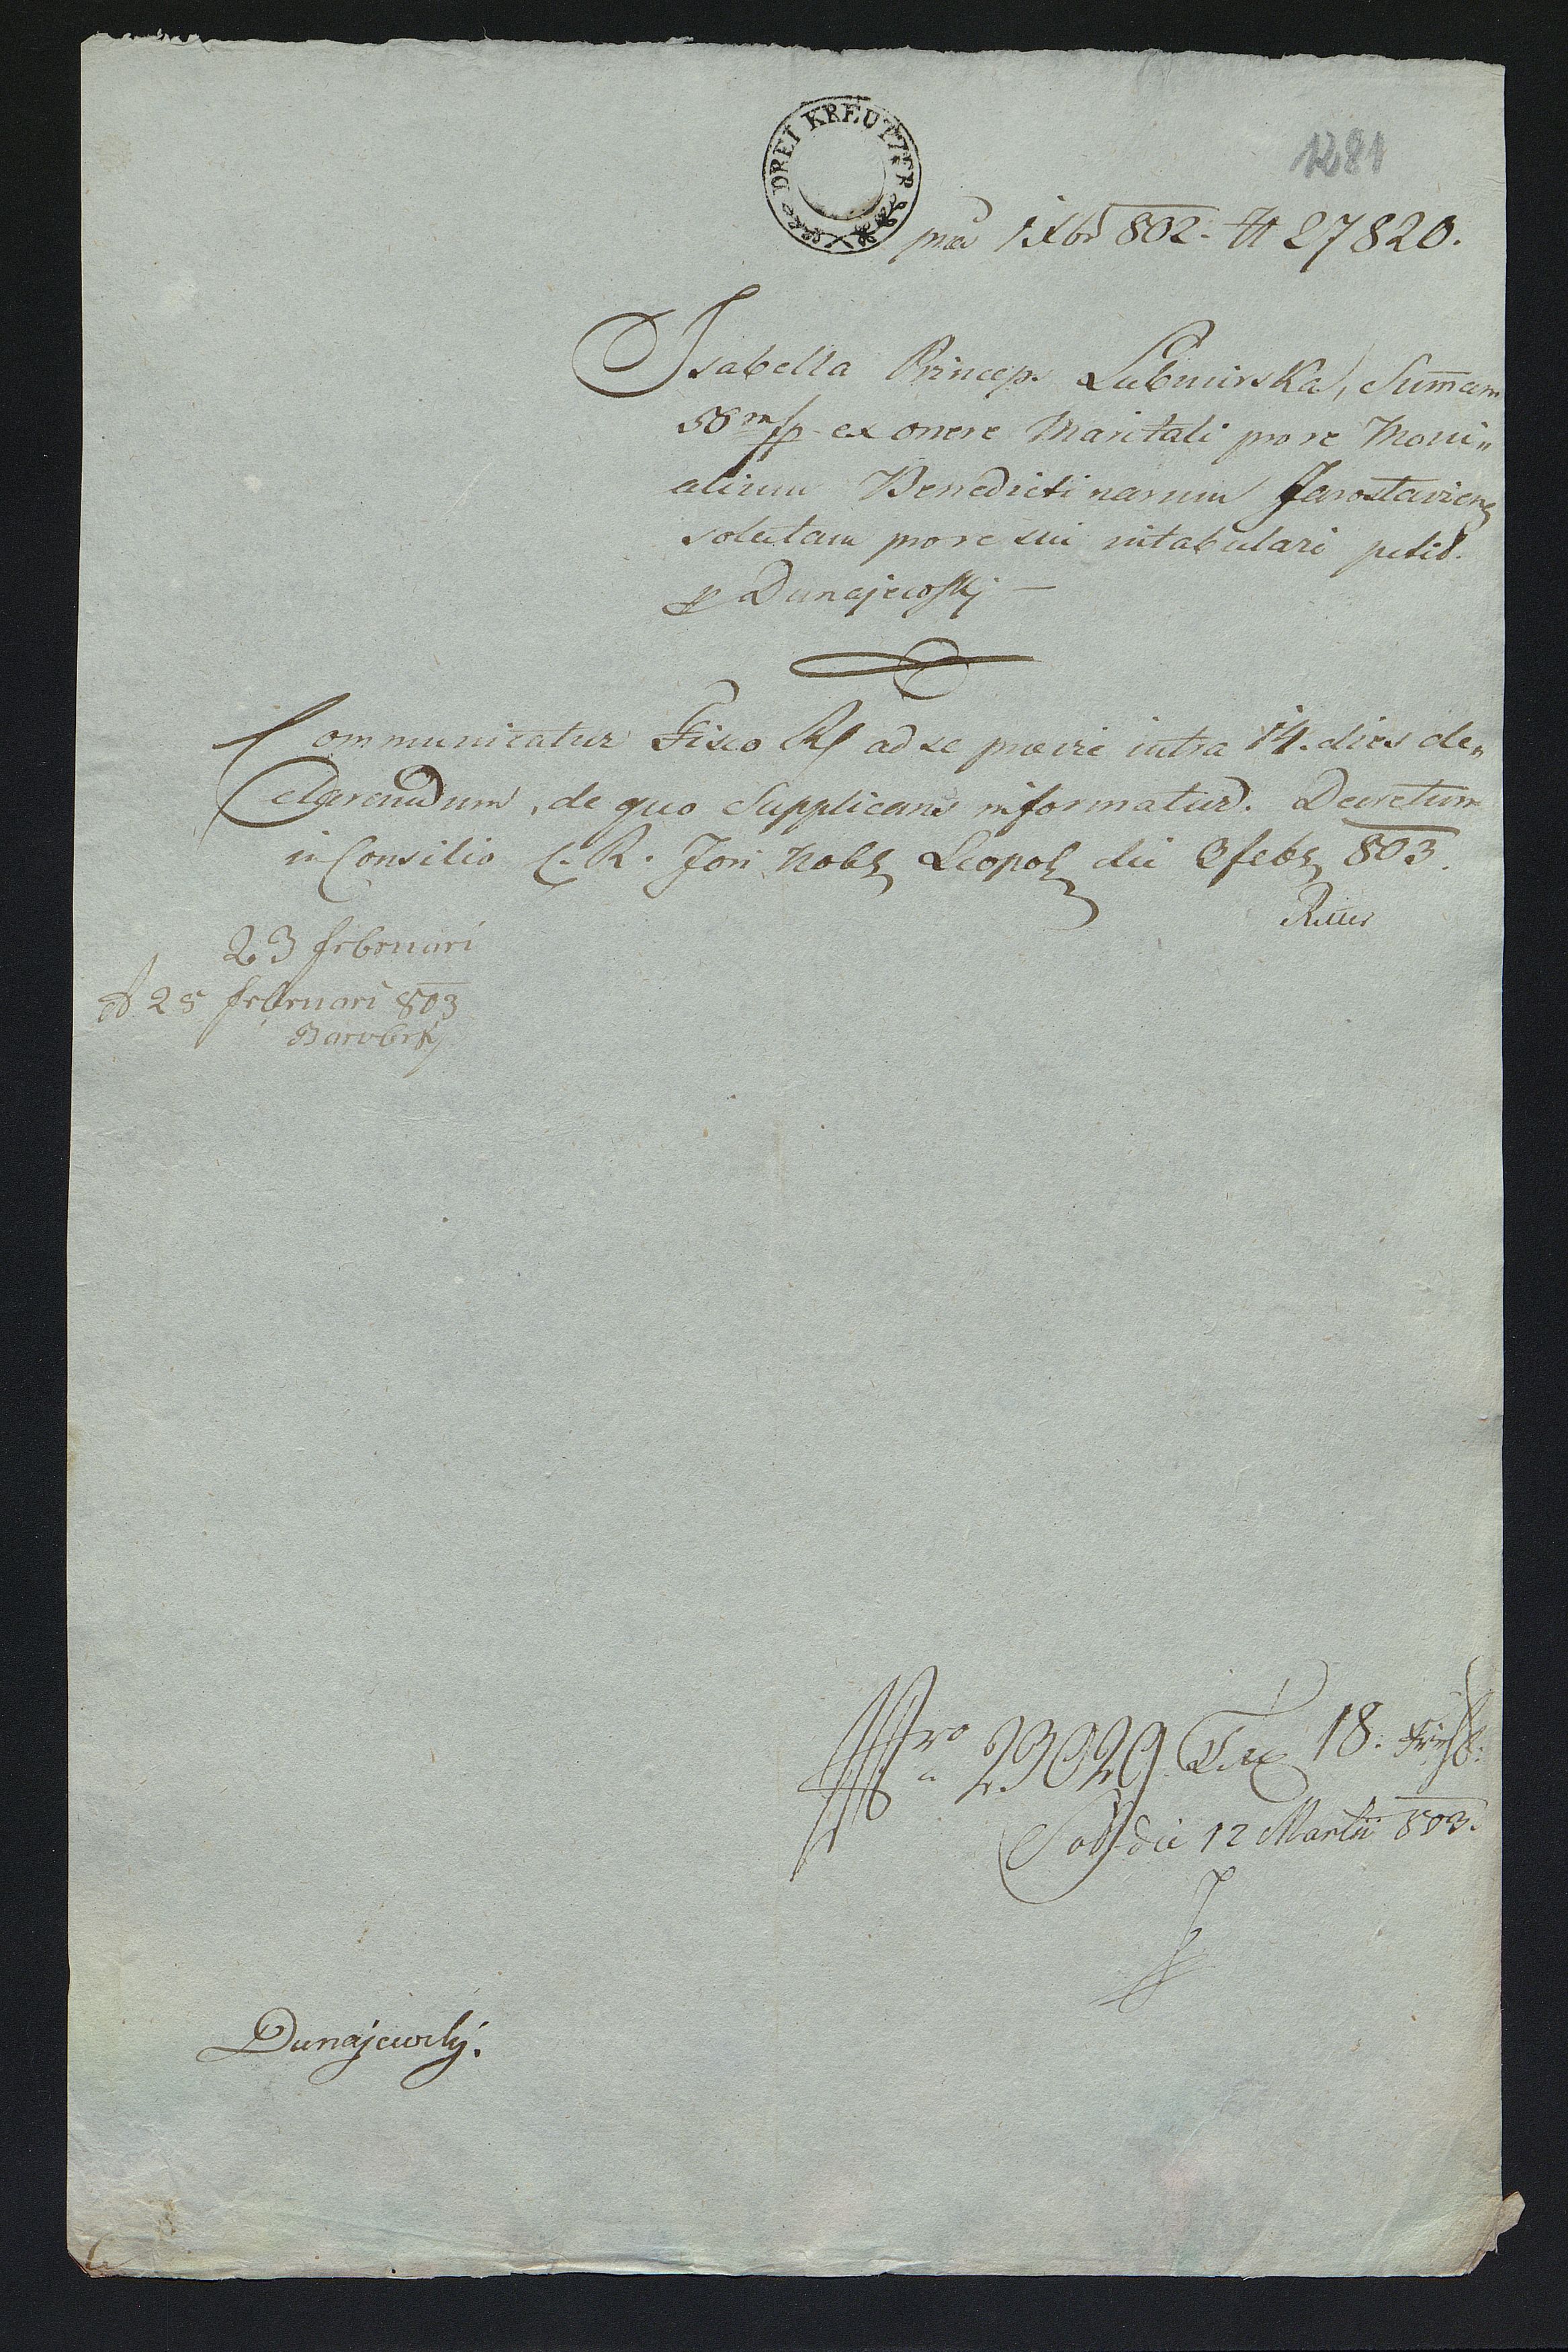 DREI KREUTZER
1281
præs 1 Xbr 802. N 27820.
Isabella Princeps Lubomirska, Summam
58 m/fp ex onere Maritali pro re Moni„
alium Benedictinarum Jaroslavien
solutam pro re sui intabulari petit.
p Dunajewskj —
Communicatur Fisco R ad se præcie intra 14. dies de„
clarandum, de quo Supplicans informatur. Decretum
in Consilio C. R. Fori Nobil Leopol die 3 febr 803.
23 februari
25 februari 803
Nro 23029 Tax 18.
Sol die 12 Martii 803.
Dunajewskj.